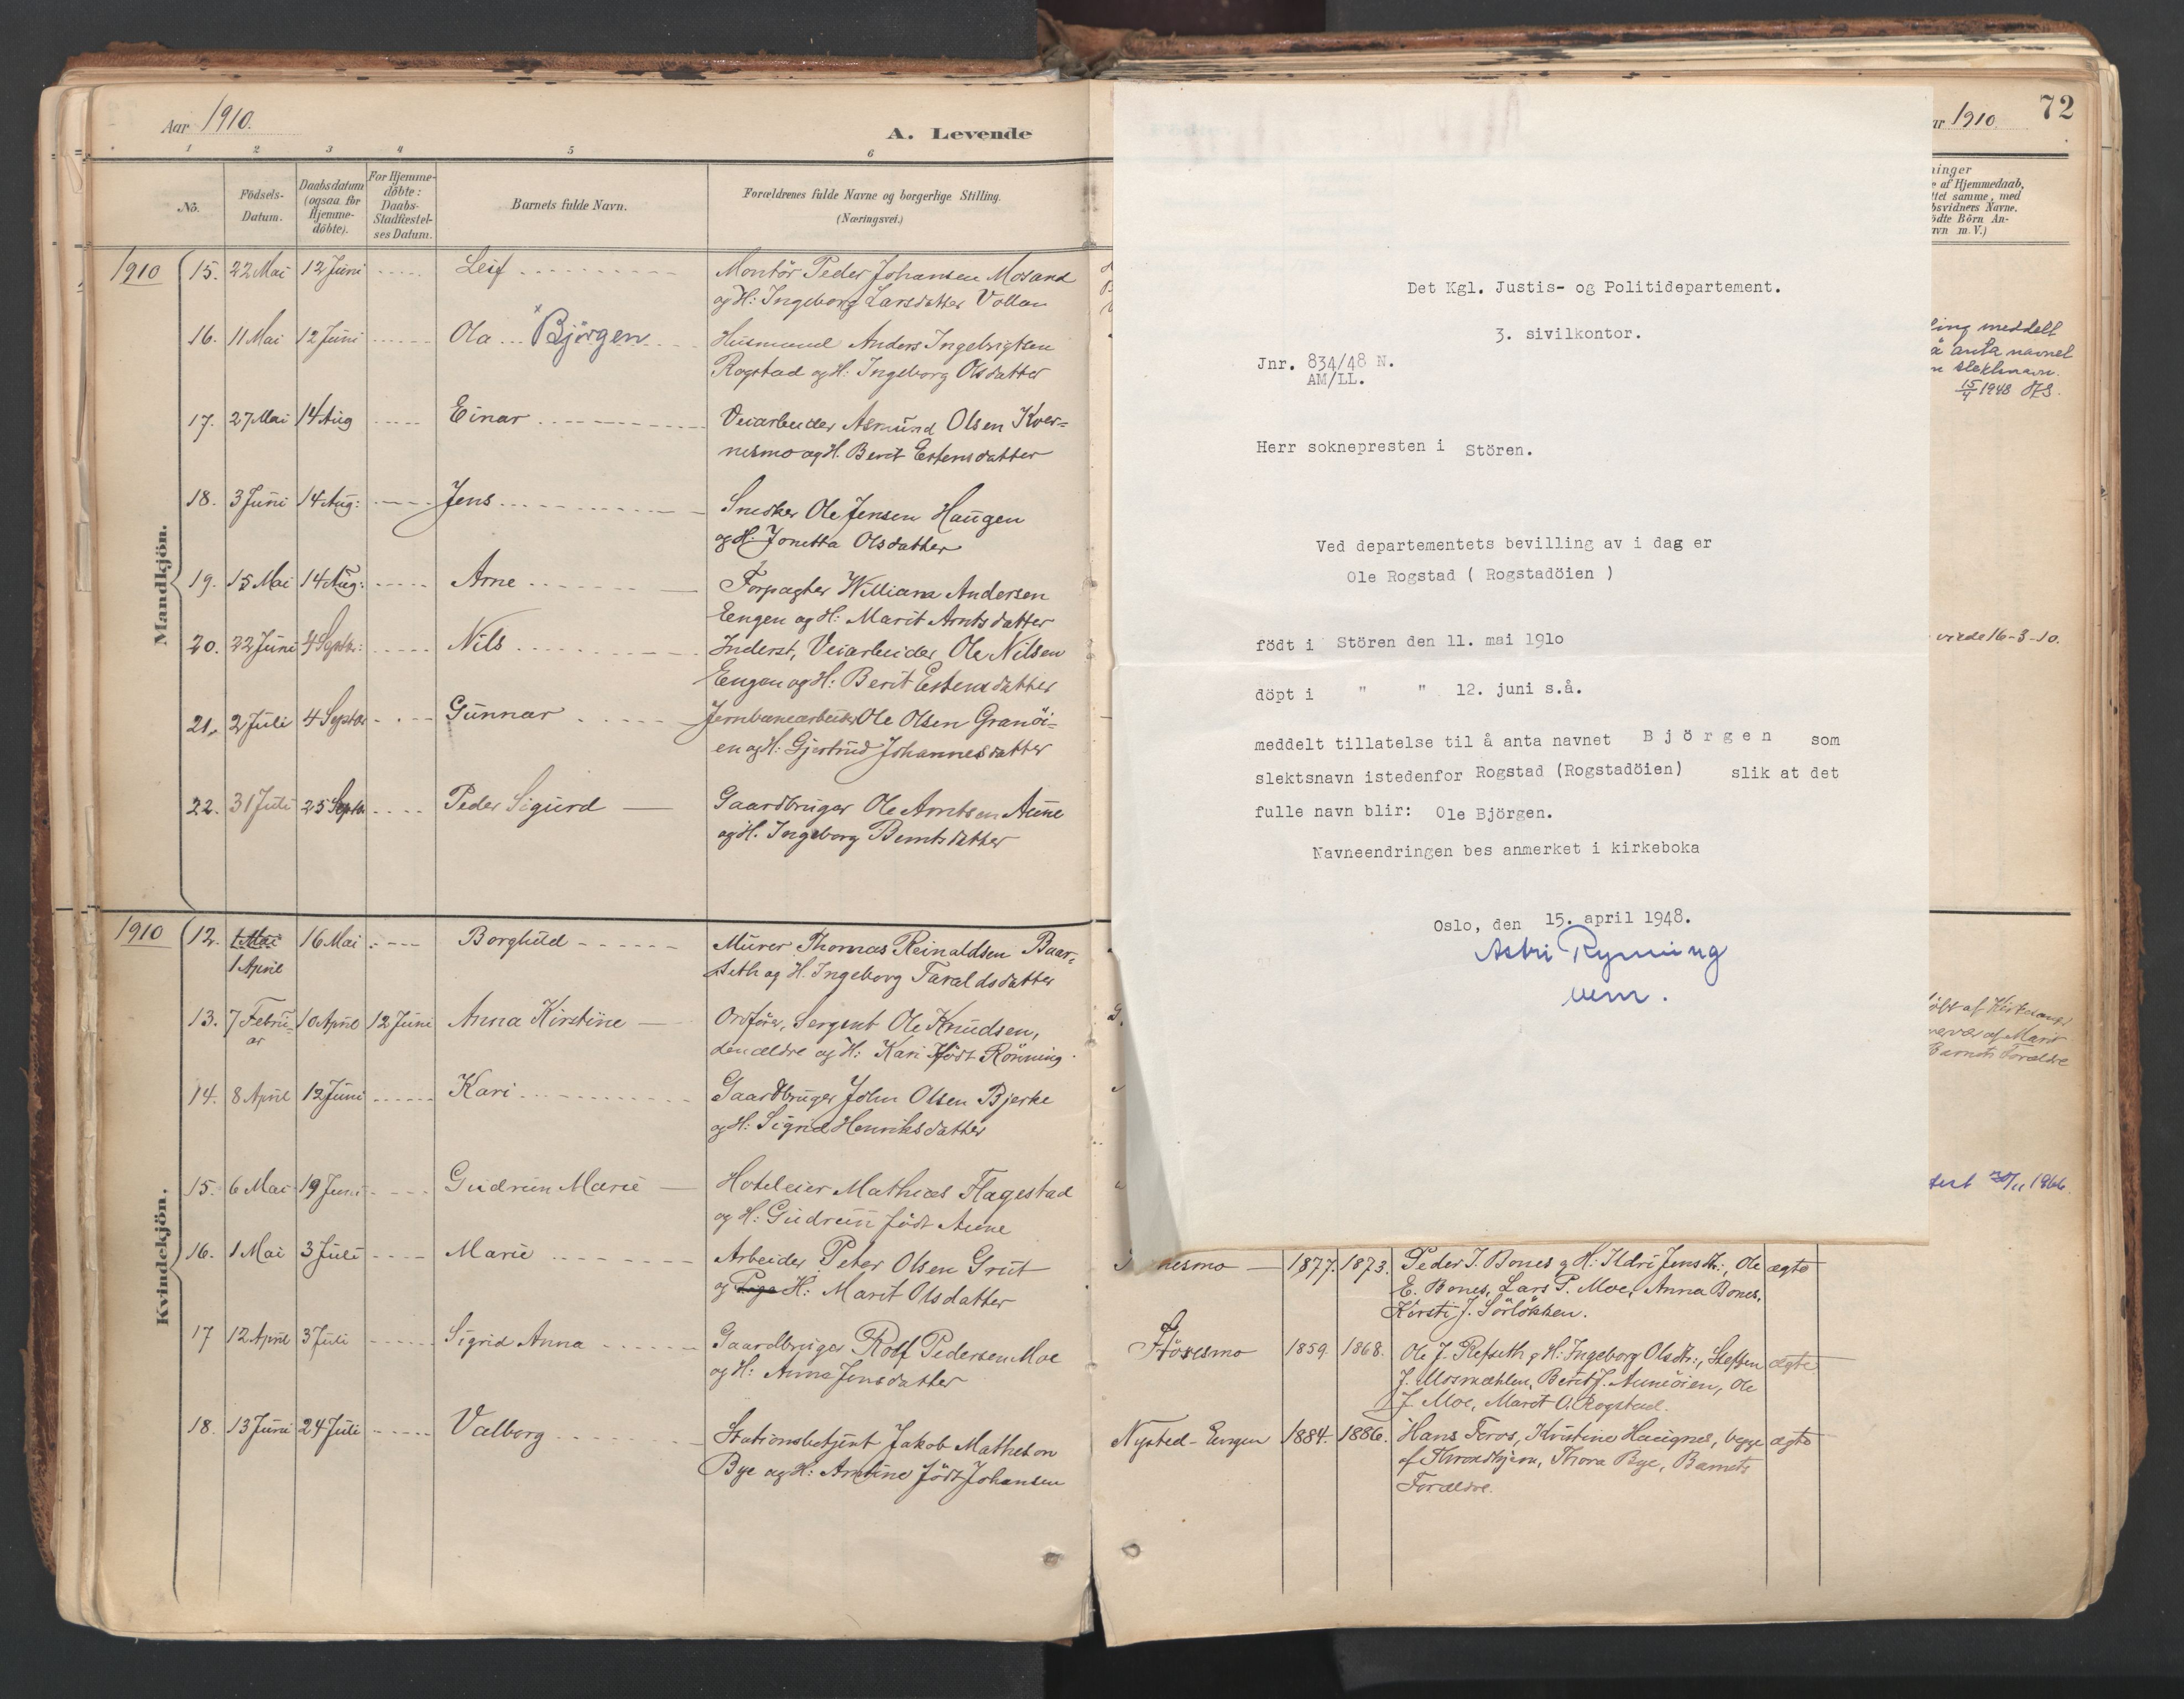 Aar 1910.
A. Levende
1 2 3 4 5 6
No.
Födsels-Datum.
Daabsdatum (ogsaa for Hjemme-döbte).
For Hjemme-döbte: Daabs-Stadfæstel-ses Datum.
Barnets fulde Navn.
Forældrenes fulde Navne og borgerlige Stilling.
(Næringsvei.)
Mandkjön.
1910 15. 22 Mai 12 Juni Leif Montör Peder Johansen Mosand
og H: Ingeborg Larsdatter Vollan
16. 11 Mai 12 Juni Ola × Björgen Husmand Anders Ingebrigtsen
Rogstad og H: Ingeborg Olsdatter
17. 27 Mai 14 Aug Einar Veiarbeider Asmund Olsen Kver=
nesmo og H. Berit Estensdatter
18. 3 Juni 14 Aug: Jens Snedker Ole Jensen Haugen
og H. Jonetta Olsdatter
19. 15 Mai 14 Aug: Arne Forpagter William Andersen
Eengen og H: Marit Arntsdatter
20. 22 Juni 4 Septbr: Nils Inderst, Veiarbeider Ole Nilsen
Eengen og H: Berit Estensdatter
21. 2 Juli 4 Septbr Gunnar Jernbanearbeider Ole Olsen Granöi=
en og H: Gjertrud Johannesdatter
22. 31 Juli 25 Septbr Peder Sigurd Gaardbruger Ole Arntsen Aune
og H. Ingeborg Berntsdatter
Kvindekjön.
1910 12. 1 Mai 16 Mai Borghild Murer Thomas Reinaldsen Baar=
1 April seth og H. Ingeborg Taraldsdatter
13. 7 Febru= 10 April 12 Juni Anna Kirstine Ordförer, Sergent Ole Knudsen,
ar den ældre og H: Kari född Rönning
14. 8 April 12 Juni Kari Gaardbruger John Olsen Bjerke
og H: Sigrid Henriksdatter
15. 6 Mai 19 Juni Gudrun Marie Hoteleier Mathias Flagestad
og H: Gudrun född Aune
16. 1 Mai 3 Juli Marie Arbeider Peter Olsen Grut
og Pige H: Marit Olsdatter
17 12 April 3 Juli Sigrid Anna Gaardbruger Rolf Pedersen Moe
og H: Anne Jensdatter
18. 13 Juni 24 Juli Valborg Stationsbetjent Jakob Matheson
Bye og H: Arntine född Johansen
Det Kgl. Justis- og Politidepartement.
3. sivilkontor.
Jnr. 834/48 N.
AM/LL.
Herr soknepresten i Stören.
Ved departementets bevilling av i dag er
Ole Rogstad ( Rogstadöien )
födt i Stören den 11. mai 1910
döpt i " " 12. juni s.å.
meddelt tillatelse til å anta navnet Björgen som
slektsnavn istedenfor Rogstad (Rogstadöien) slik at det
fulle navn blir: Ole Björgen.
Navneendringen bes anmerket i kirkeboka
Oslo, den 15. april 1948.
Astri Rynning
72
ar 1910.
ninger
af Hjemmedaab,
ttet samme, med
bsvidners Navne.
ödte Börn An-
avn m. V.)
ling meddelt
å anta navnet
n slektsnavn.
15/4 1948
16-3-10.
Barnets Forældre
1966.
nesmo 1877. 1873. Peder J. Bones g H: Ildri Jensdtr:, Ole ægte
E. Bones, Lars P. Moe, Anna Bones,
Kirsti J. Sörlökken.
Störesmo 1859. 1868. Ole J. Refseth g H: Ingeborg Olsdtr:, Steffen ægte
J. Mosmælen, Berit J. Auneöien, Ole
J. Moe, Marit O. Rogstad.
Nysted-Eengen 1884. 1886. Hans Foros, Kristine Haugnes, begge ægte
af Throndhjem, Thora Bye, Barnets
Forældre.